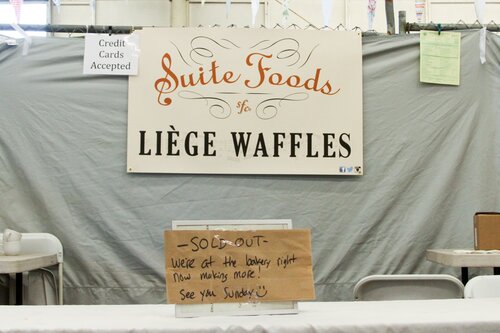 Credit
Cards
Accepted
Suite Foods
sfc
LIÈGE WAFFLES
- SOLD OUT -
We're at the bakery right
now making more!
See you Sunday ☺